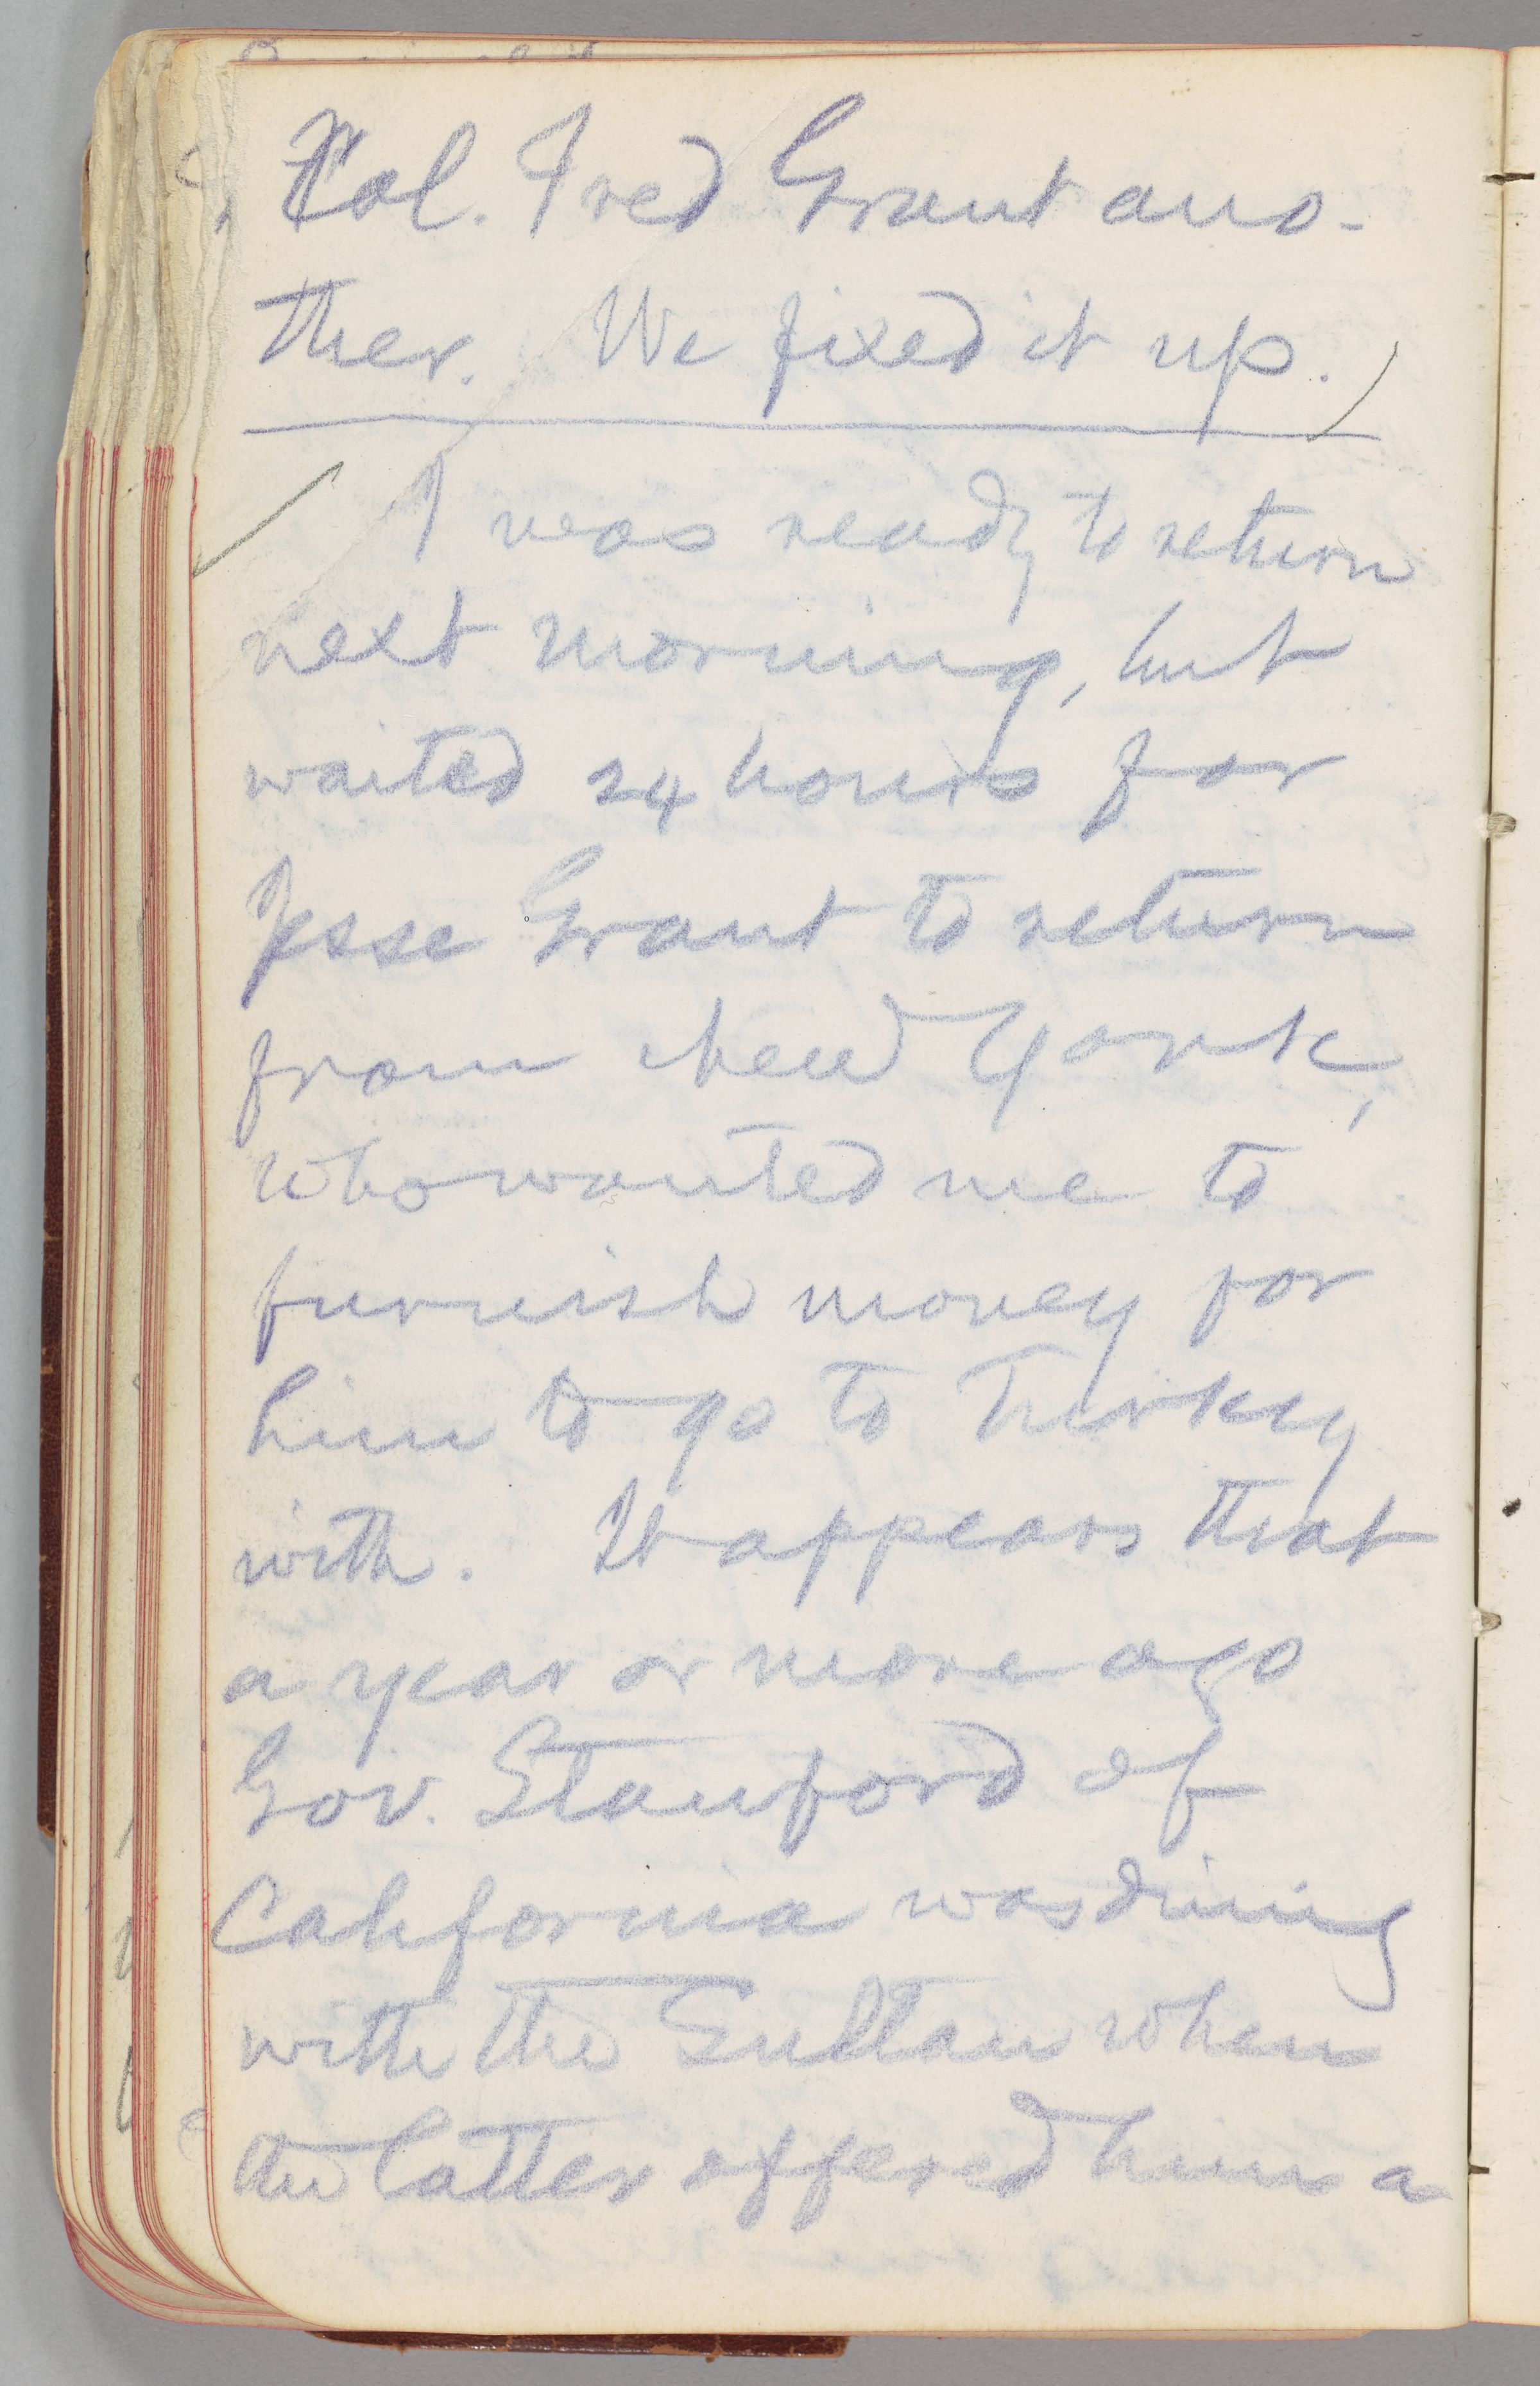 Col. Fred Grant ano-
ther. We fixed it up.
I was ready to return
next morning, but
waited 24 hours for
Jesse Grant to return
from New York,
who wanted me to
furnish money for
him to go to Turkey
with. It appears that
a year or more ago
Gov. Stanford of
California was dining
with the Sultan when
the latter offered him a